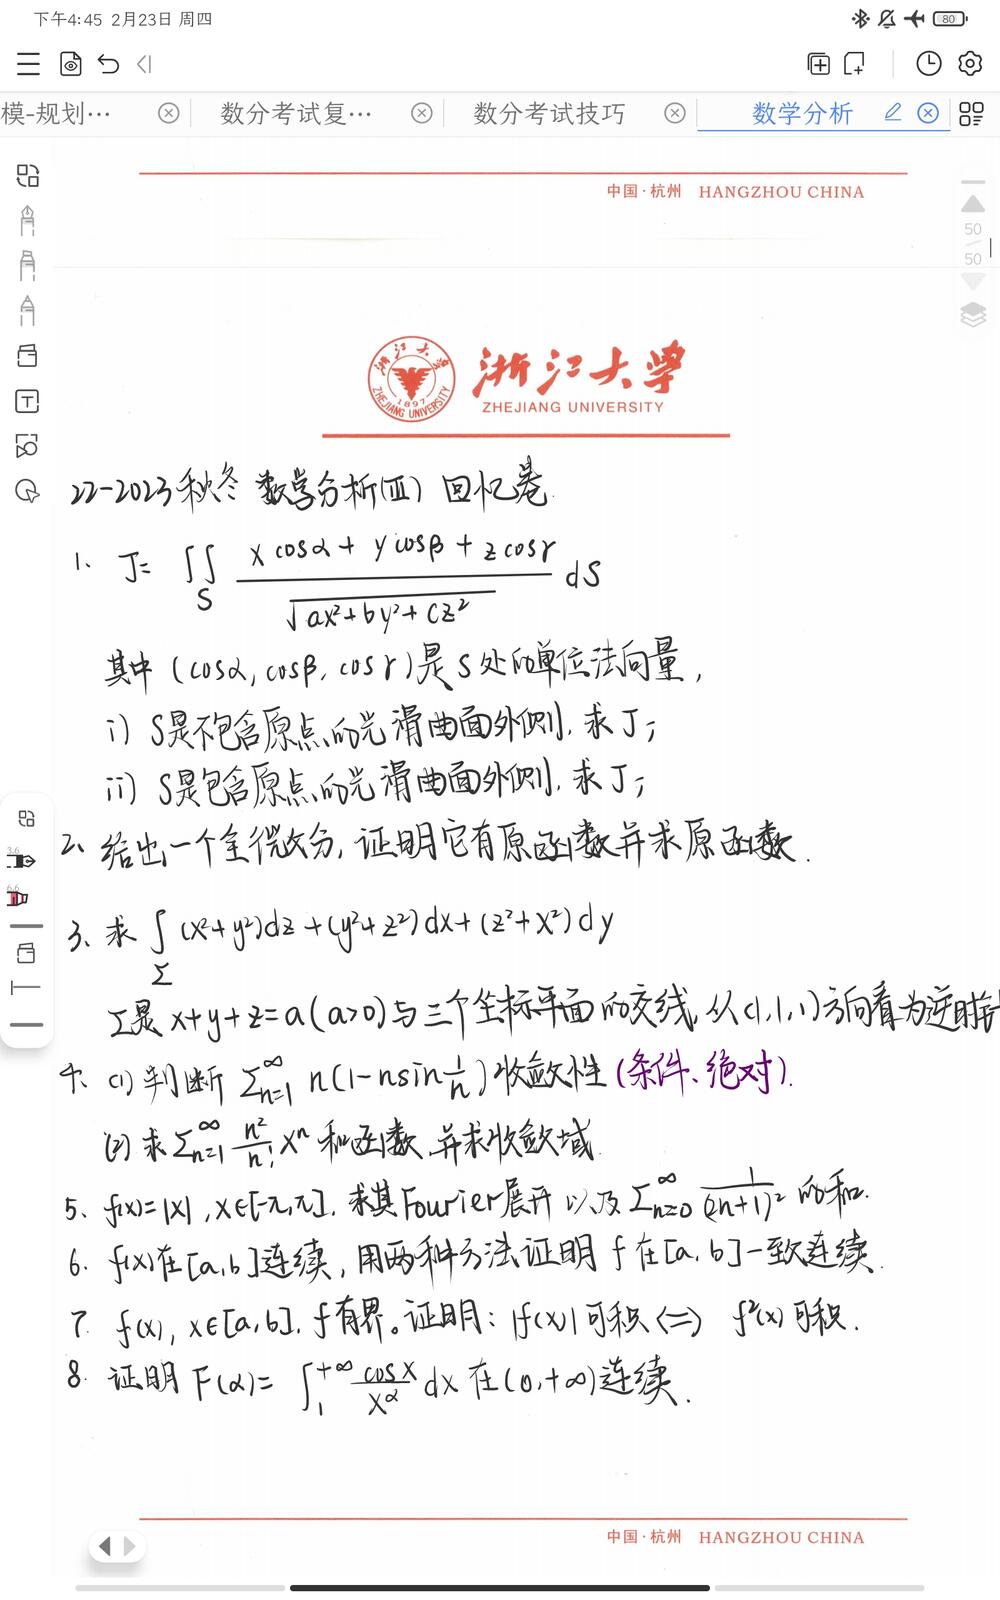 下午4:45 2月23日 周四
80
模-规划…
数分考试复…
数分考试技巧
数学分析
中国·杭州 HANGZHOU CHINA
50
50
浙江大学
ZHEJIANG UNIVERSITY
浙江大学
ZHEJIANG UNIVERSITY
1897
22-2023秋冬 数学分析(Ⅲ) 回忆卷
1、 J= ∬_S (x cosα + y cosβ + z cosγ)/√(ax²+by²+cz²) dS
其中 (cosα, cosβ, cosγ)是S处的单位法向量,
i) S是不包含原点的光滑曲面外侧, 求J;
ii) S是包含原点的光滑曲面外侧, 求J;
2、给出一个全微分, 证明它有原函数并求原函数.
3、求 ∫_Σ (x²+y²)dz+(y²+z²)dx+(z²+x²)dy
Σ是 x+y+z=a(a>0)与三个坐标平面的交线, 从(1,1,1)方向看为逆时针
4、(1)判断 Σ_{n=1}^∞ n(1-nsin 1/n)收敛性(条件、绝对).
(2)求Σ_{n=1}^∞ n²/n! xⁿ 和函数, 并求收敛域.
5、f(x)=|x|, x∈[-π,π], 求其Fourier展开以及 Σ_{n=0}^∞ 1/(2n+1)² 的和.
6、f(x)在[a,b]连续, 用两种方法证明f在[a,b]一致连续.
7. f(x), x∈[a,b], f有界。证明: |f(x)|可积⟺ f²(x)可积.
8. 证明F(α)= ∫_1^{+∞} cosx/x^α dx 在(0,+∞)连续.
3.6
6.6
中国·杭州 HANGZHOU CHINA